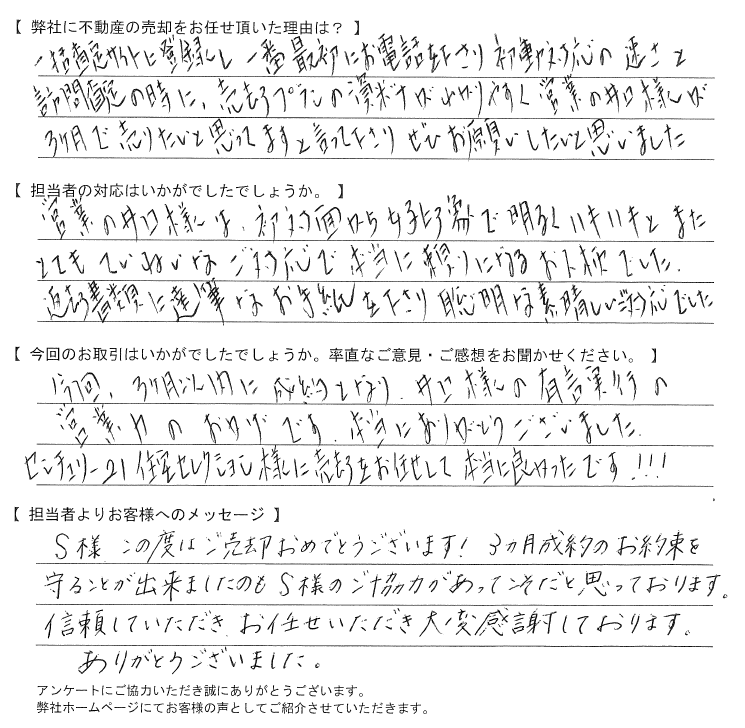 【 弊社に不動産の売却をお任せ頂いた理由は？ 】
一括査定サイトに登録し 一番最初にお電話を下さり 初動対応の速さと
訪問査定の時に、売却プランの 業の井口様が
3ヶ月で売りたいと思ってますと言って下さり ぜひお願いしたいと思いました
【 担当者の対応はいかがでしたでしょうか。 】
営業の井口様は、初対面から 明るくハキハキと また
とても ていねいな ご対応で 本当に頼りになるお人柄でした.
書類に達筆なお手紙を下さり 聡明な素晴しいご対応でした
【 今回のお取引はいかがでしたでしょうか。率直なご意見・ご感想をお聞かせください。 】
今回、3ヶ月以内に 成約となり、井口様の有言実行の
営業力の おかげです. 本当にありがとうございました.
センチュリー21住宅セレクション様に売却をお任せして 本当に良かったです!!!
【 担当者よりお客様へのメッセージ 】
S様 この度はご売却おめでとうございます! 3ヵ月成約のお約束を
守ることが出来ましたのもS様のご協力があってこそだと思っております。
信頼していただき お任せいただき大変感謝しております。
ありがとうございました。
アンケートにご協力いただき誠にありがとうございます。
弊社ホームページにてお客様の声としてご紹介させていただきます。